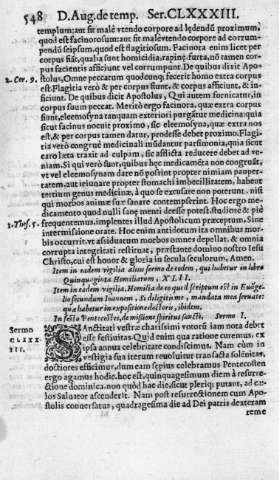 548 D. Aug. de temp. Ser. CLXXXIII.
templum: aut fit malè vtendo corpore ad lędendũ proximum,
quod est facinorosum: aut fit malè vtendo corpore ad corrum-
pendũ seipsum, quod est flagitiosum. Facinora enim licet per
corpus fiãt, qualia sunt homicidia, rapinę, furta, nõ tamen cor-
pus facientis afficiunt vel corrumpunt. De quibus dixit Apo-
2. Cor. 9. stolus, Omne peccatum quodcunq; fecerit homo extra corpus
est. Flagitia verò & per corpus fiunt, & corpus afficiunt, & in-
ficiunt. De quibus dicit Apostolus, Qui autem fornicatur, in
corpus suum peccat. Meritò ergo facinora, quæ extra corpus sunt
eleemosyna tanquam exteriori purgãtur medicina quia
sicut facinus nocuit proximo, sic eleemosyna, quæ extra nos
est, & per corpus tamen datur, prodesse debet proximo. Flagi-
tia verò congruè medicinali mũdantur parsimonia, quia sicut
caro læta traxit ad culpam, sic afflicta reducere debet ad ve-
niam. Si qui verò sunt, quibus hęc medicamẽta non congruũt,
vt vel eleemosynam dare nõ possint propter nimiam paupe-
tatem, aut ieiunare propter stomachi imbecillitatem, habent
tertium genus medicinæ, à quo se excusare non poterunt, nisi
qui morbos animæ suæ sanare contempserint. Hoc ergo me-
dicamento quod nulli sanę menti deesse potest, studiosè & piè
1. Thes. 5. frequentemus, implentes illud Apostolicum præceptum, Sine
intermissione orate. Hoc enim antidotum ita omnibus mor-
bis occurrit, vt assiduatum morbos omnes depellat, & omnia
corrupta integritati restituat, præstante Domino nostro Iesu
Christo, cui est honor & gloria in secula seculorum, Amen.
Item in eadem vigilia alius sermo de eodem, qui habetur in libro
Quinquaginta Homiliarum, XLII.
Item in eadem vigilia, Homilia de eo quod scriptum est in Euãge-
lio secundum Ioannem, Si diligitis me, mandata mea seruate:
quæ habetur in expositione doctoris, ibidem.
In festo Pentecostes, de missione spiritus sancti, Sermo I.
Sermo
CLXXX
III.
SAnctitati vestræ charissimi votorũ iam nota debet
esse festiuitas. Quid enim qua ratione curemus, ex
ipsa annua celebritate condiscimus. Nam cùm in
vestigia sua iterum reuoluitur transacta solẽnitas,
doctiores efficimur, dum eam sępius celebramus. Pentecosten
ergo agamus hodie, hoc est, quinquagesimum diem à resurre-
ctione dominica, non quòd hac die, sicut pleriq; putant, ad cæ-
los Saluator ascenderit. Nam post resurrectionem cum Apo-
stolis conuersatus, quadragesima die ad Dei patris dexteram
reme